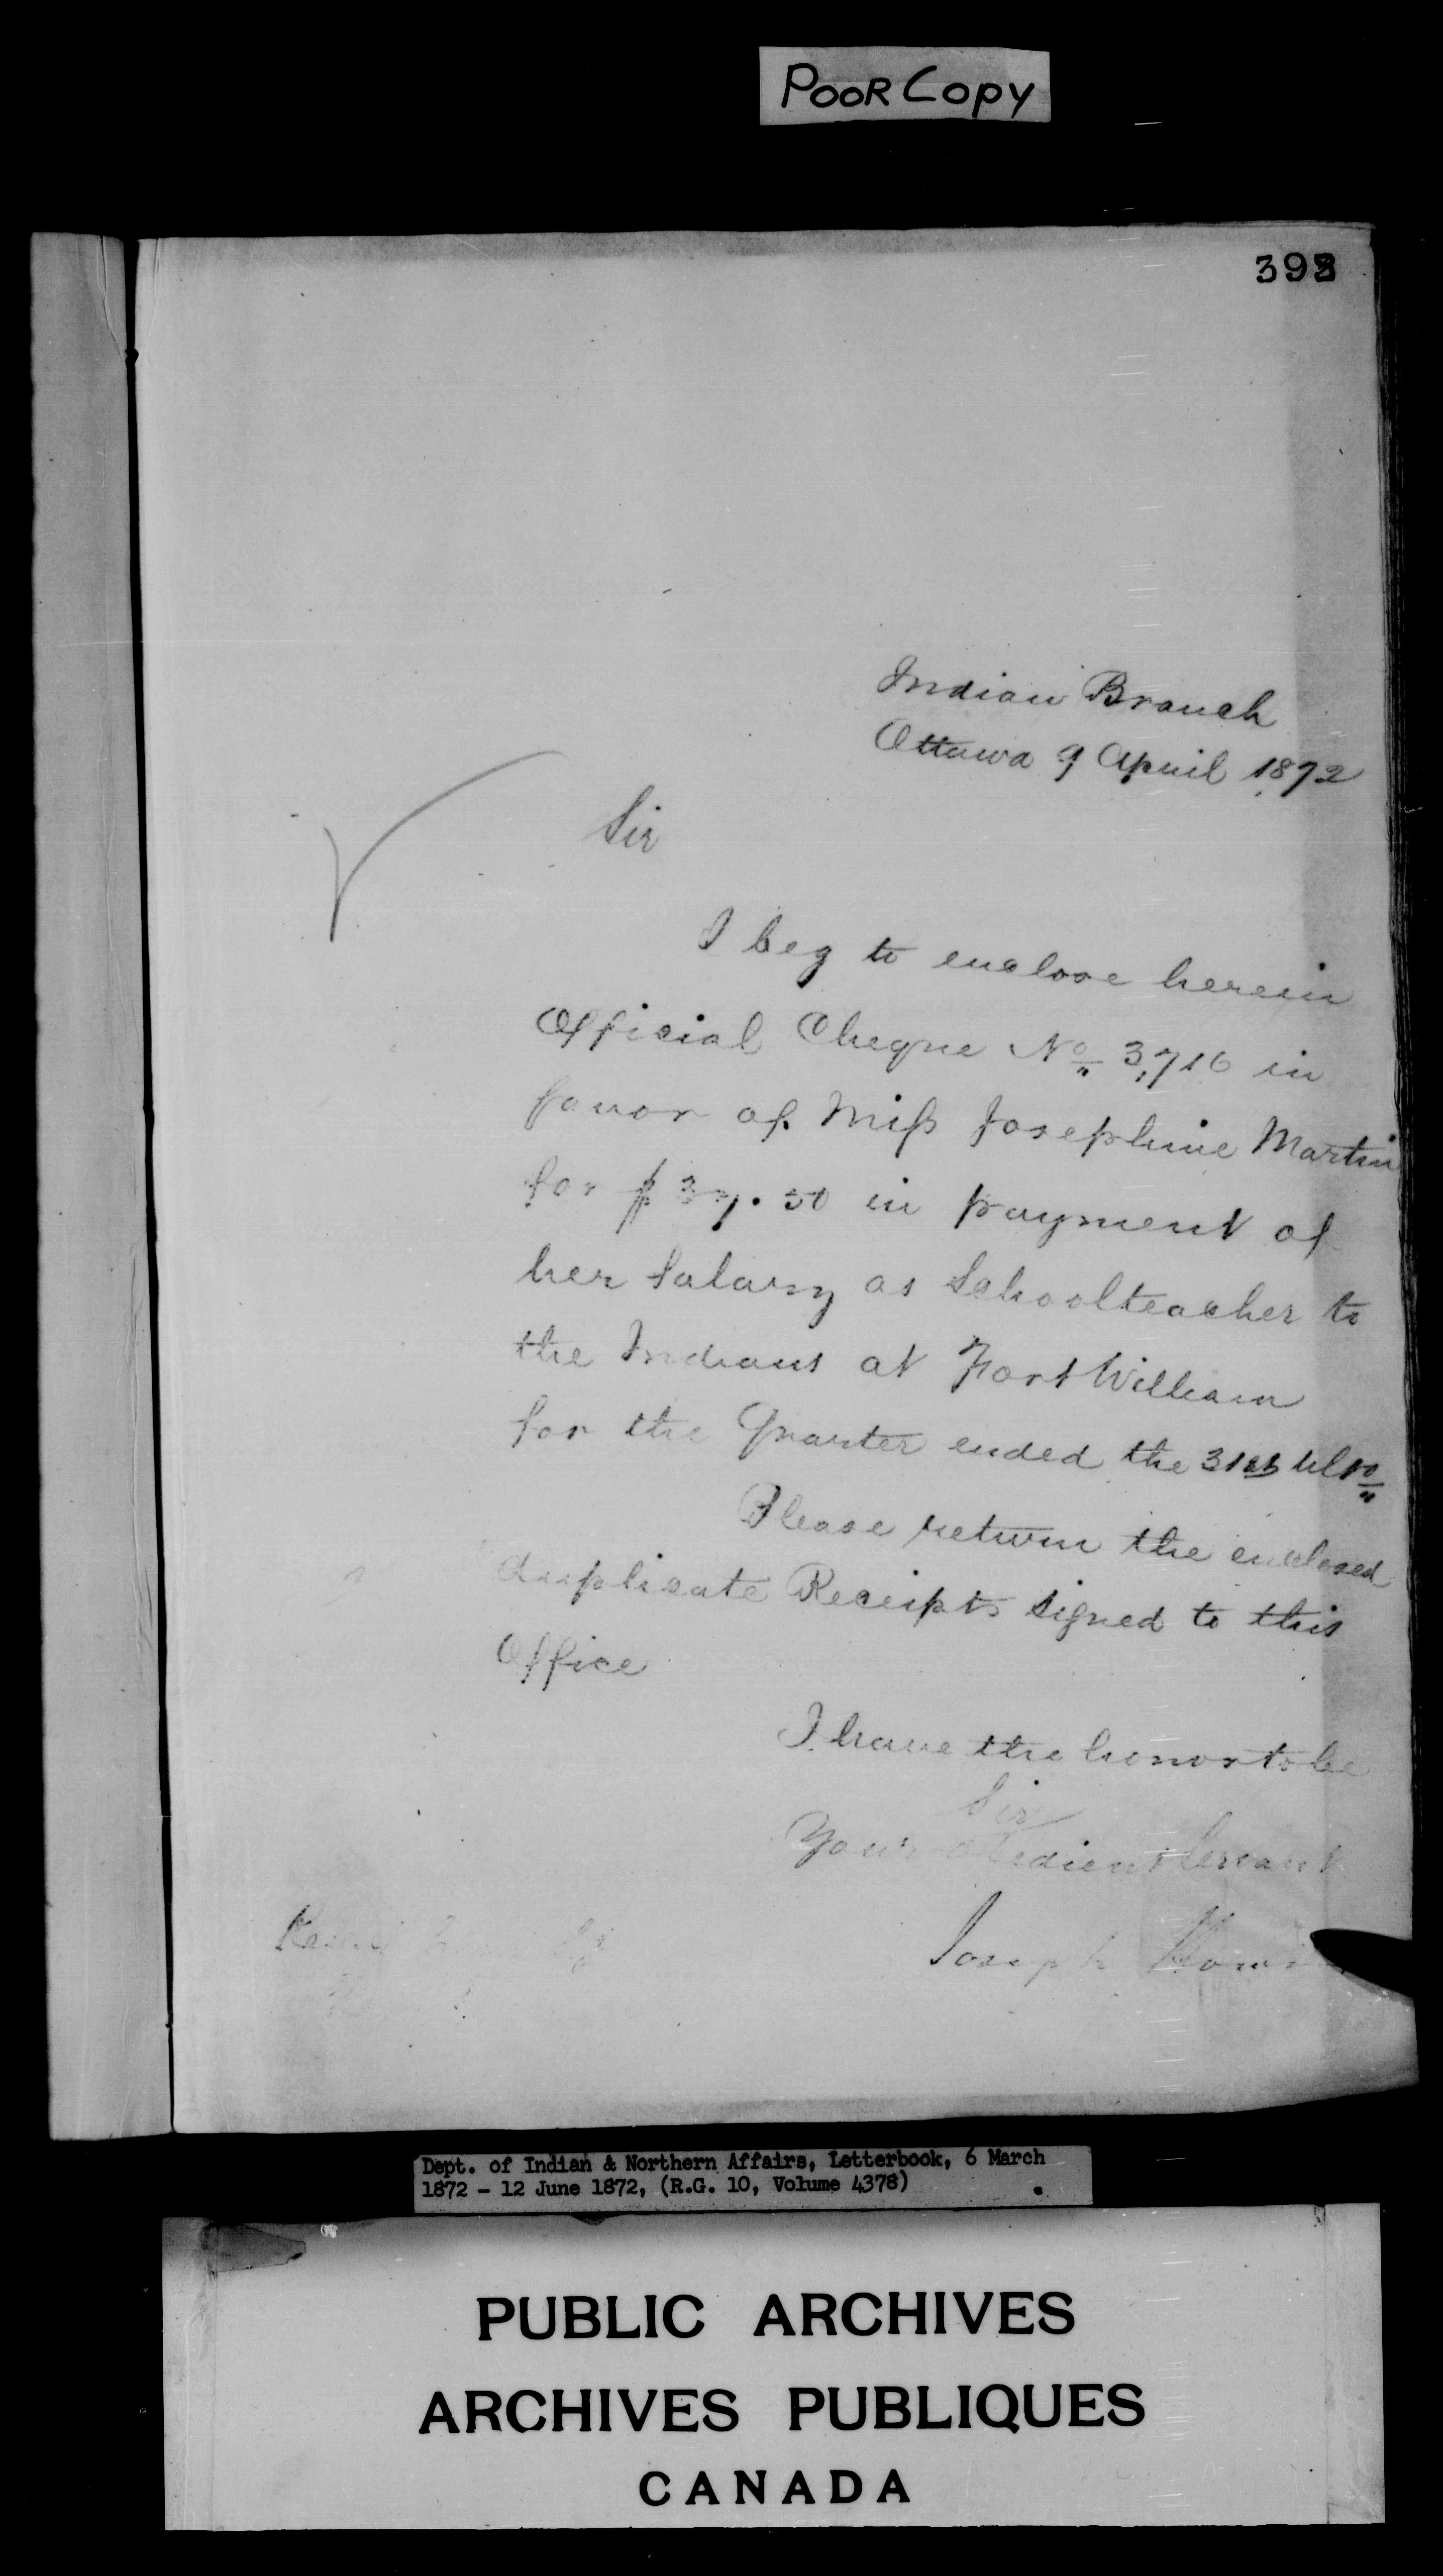 POOR COPY
393
Indian Branch
Ottawa 9 April 1872
Sir
I beg to enclose herein
Official Cheque No 3,716 in
favor of Miss Josephine Martin
for $37.50 in payment of
her Salary as Schoolteacher to
the Indians at Fort William
for the Quarter ended the 31st Ulto
Please return the enclosed
duplicate Receipts signed to this
Office
I have the honor to be
Sir
Your Obedient Servant
Joseph Howe
Dept. of Indian & Northern Affairs, Letterbook, 6 March
1872 - 12 June 1872, (R.G. 10, Volume 4378)
PUBLIC ARCHIVES
ARCHIVES PUBLIQUES
CANADA